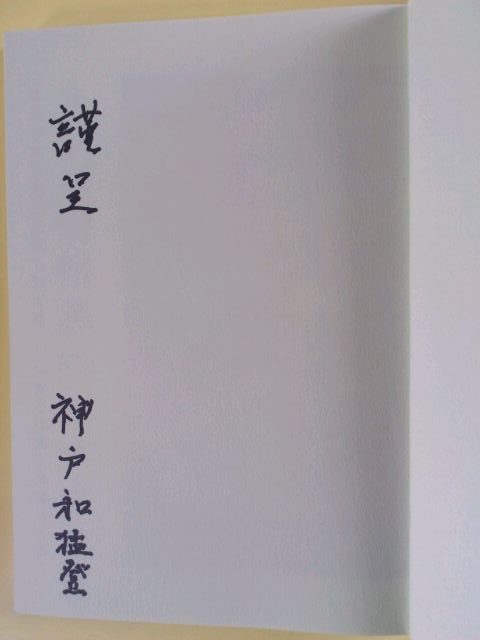 謹呈
神戸和猛登